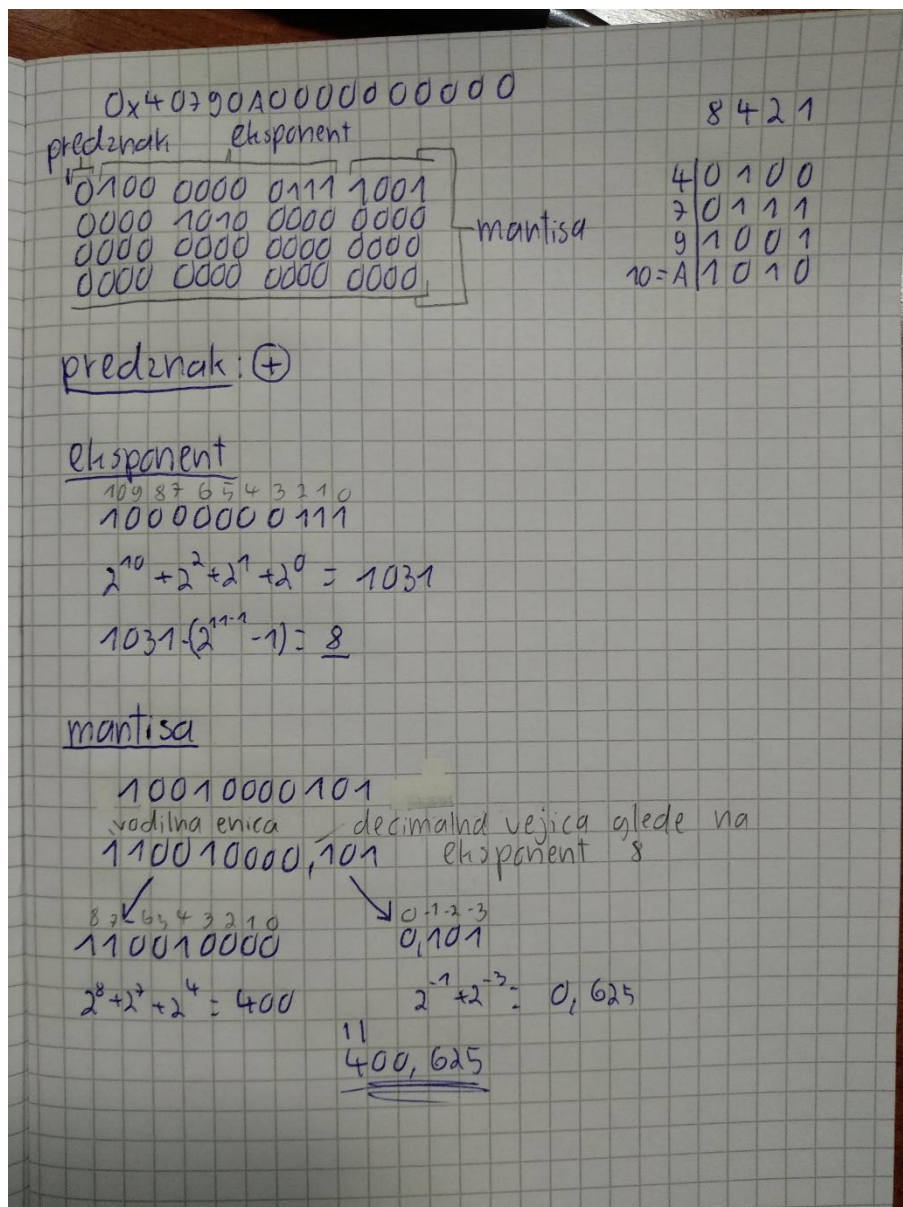 0x40790A0000000000
8 4 2 1
predznak eksponent
0100 0000 0111 1001
0000 1010 0000 0000
0000 0000 0000 0000
0000 0000 0000 0000
mantisa
4 0 1 0 0
7 0 1 1 1
9 1 0 0 1
10=A 1 0 1 0
predznak: +
eksponent
10 9 8 7 6 5 4 3 2 1 0
10000000111
2^10 + 2^2 + 2^1 + 2^0 = 1031
1031-(2^11-1 -1) = 8
mantisa
10010000101
vodilna enica decimalna vejica glede na
110010000,101 eksponent 8
8 7 6 5 4 3 2 1 0
110010000
2^8 + 2^7 + 2^4 = 400
0 -1 -2 -3
0,101
2^-1 + 2^-3 = 0,625
11
400,625